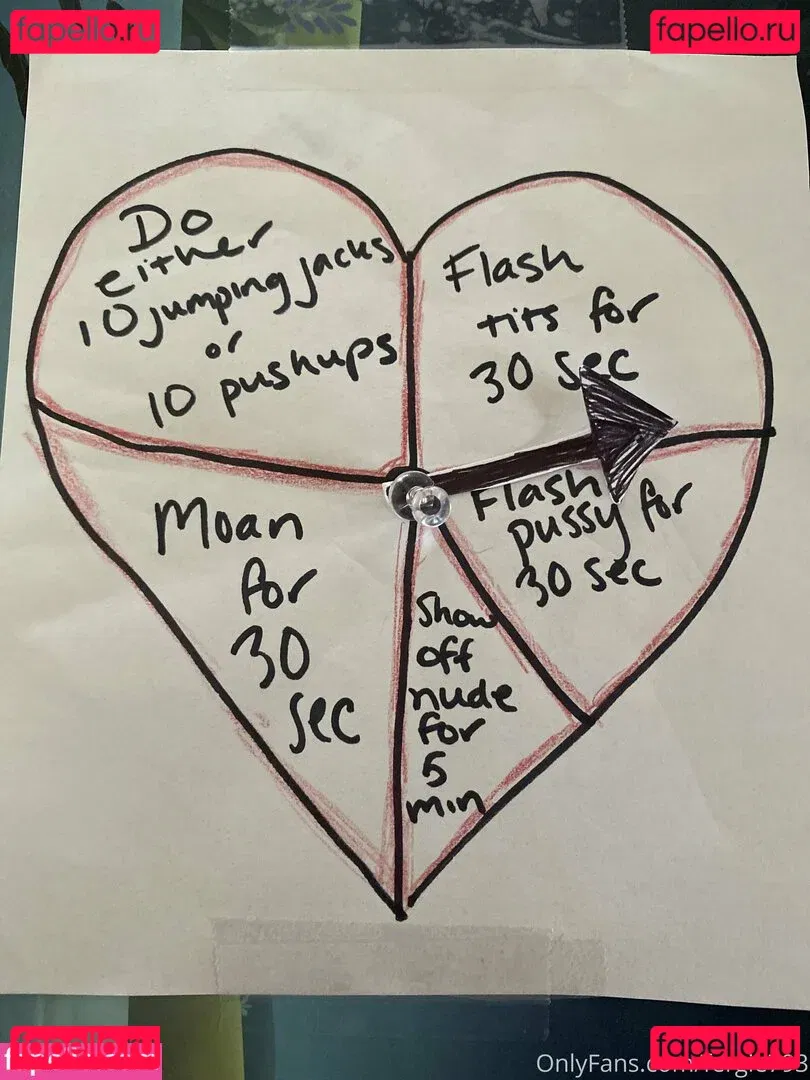 fapello.ru
fapello.ru
Do
either
10 jumping jacks
or
10 pushups
Flash
tits for
30 sec
Flash
pussy for
30 sec
Show
off
nude
for
5
min
Moan
for
30
sec
fapello.ru
fapello.ru